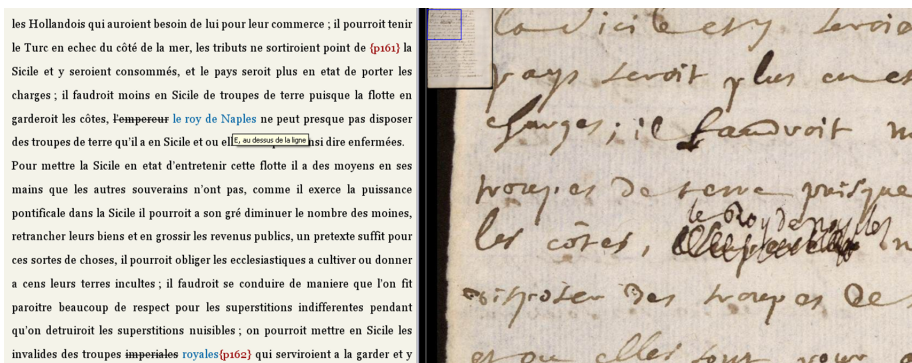 les Hollandois qui auroient besoin de lui pour leur commerce ; il pourroit tenir
le Turc en echec du côté de la mer, les tributs ne sortiroient point de {p161} la
Sicile et y seroient consommés, et le pays seroit plus en etat de porter les
charges ; il faudroit moins en Sicile de troupes de terre puisque la flotte en
garderoit les côtes, l'empereur le roy de Naples ne peut presque pas disposer
des troupes de terre qu'il a en Sicile et ou ell E, au dessus de la ligne nsi dire enfermées.
Pour mettre la Sicile en etat d'entretenir cette flotte il a des moyens en ses
mains que les autres souverains n'ont pas, comme il exerce la puissance
pontificale dans la Sicile il pourroit a son gré diminuer le nombre des moines,
retrancher leurs biens et en grossir les revenus publics, un pretexte suffit pour
ces sortes de choses, il pourroit obliger les ecclesiastiques a cultiver ou donner
a cens leurs terres incultes ; il faudroit se conduire de maniere que l'on fit
paroitre beaucoup de respect pour les superstitions indifferentes pendant
qu'on detruiroit les superstitions nuisibles ; on pourroit mettre en Sicile les
invalides des troupes imperiales royales{p162} qui serviroient a la garder et y
la Sicile et y seroie
pays seroit plus en es
charges ; il faudroit m
troupes de terre puisque
le Roy de naples
les côtes, n
disposer des troupes de
et ou elles sont pour